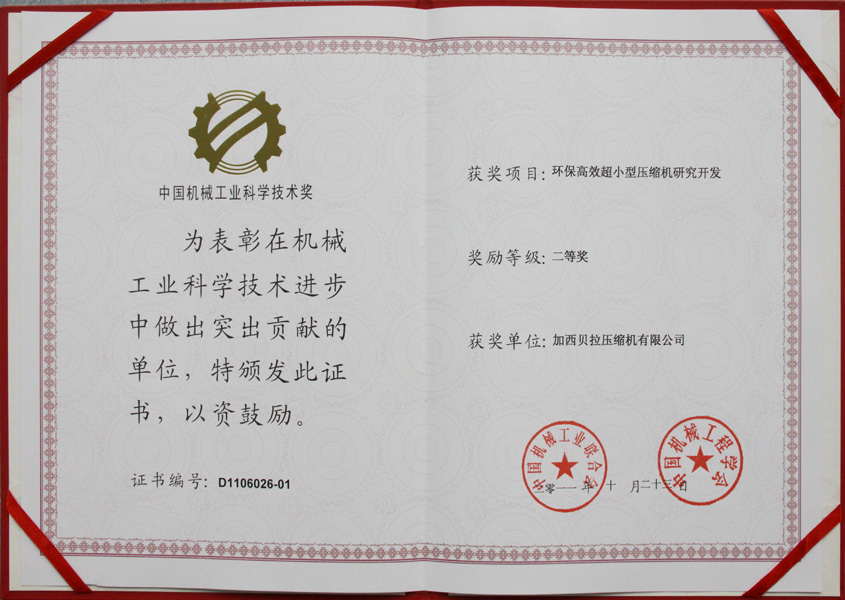 中国机械工业科学技术奖
为表彰在机械
工业科学技术进步
中做出突出贡献的
单位，特颁发此证
书，以资鼓励。
证书编号：D1106026-01
获奖项目：环保高效超小型压缩机研究开发
奖励等级：二等奖
获奖单位：加西贝拉压缩机有限公司
中国机械工业联合会
中国机械工程学会
二零一一年十月二十三日